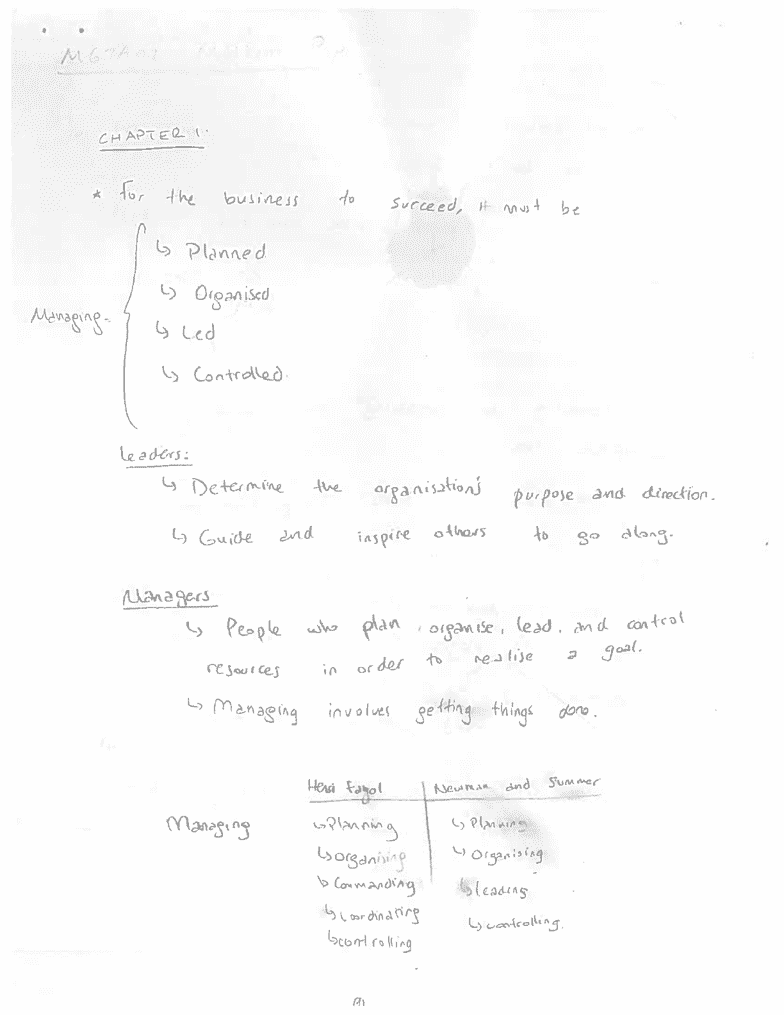 CHAPTER 1.
* For the business to succeed, it must be
Managing.
↳ Planned
↳ Organised
↳ Led
↳ Controlled.
Leaders:
↳ Determine the organisation's purpose and direction.
↳ Guide and inspire others to go along.
Managers
↳ People who plan, organise, lead, and control
resources in order to realise a goal.
↳ Managing involves getting things done.
Managing
Henri Fayol | Newman and Summer
↳ Planning | ↳ Planning
↳ Organising | ↳ Organising
↳ Commanding | ↳ Leading
↳ Coordinating | ↳ Controlling.
↳ Controlling